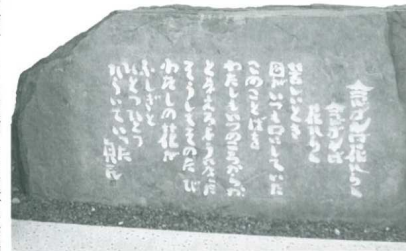 念ずれば花ひらく
念ずれば
花ひらく
苦しいとき
母がいつも口にしていた
このことばを
わたしもいつのころからか
となえるようになった
そうしてそのたび
わたしの花が
ふしぎと
ひとつひとつ
ひらいていった